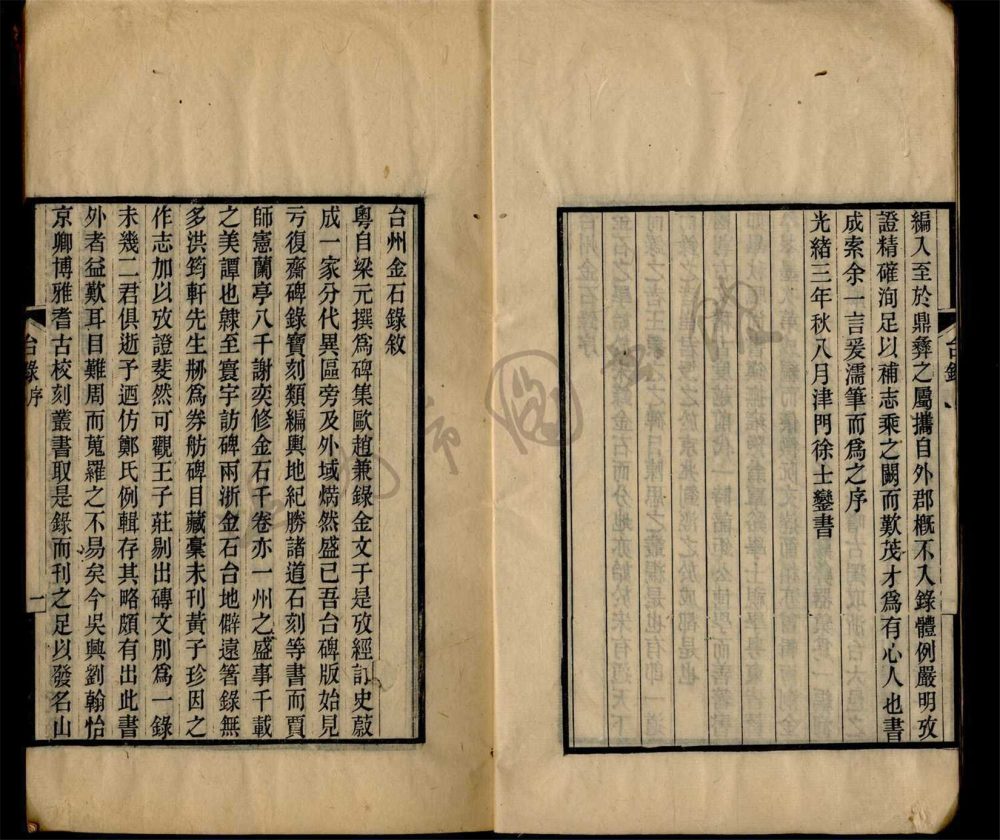 編入至於鼎彝之屬攜自外郡概不入錄體例嚴明攷
證精確洵足以補志乘之闕而歎茂才爲有心人也書
成索余一言爰濡筆而爲之序
光緒三年秋八月津門徐士鑾書
台州金石錄敘
粵自梁元撰爲碑集歐趙兼錄金文于是攷經訂史蔚
成一家分代異區旁及外域熀然盛已吾台碑版始見
亏復齋碑錄寶刻類編輿地紀勝諸道石刻等書而賈
師憲蘭亭八千謝奕修金石千卷亦一州之盛事千載
之美譚也隸至寰宇訪碑兩浙金石台地僻遠箸錄無
多洪筠軒先生刱爲券舫碑目藏稾未刊黃子珍因之
作志加以攷證斐然可觀王子莊剔出磚文別爲一錄
未幾二君俱逝予迺仿鄭氏例輯存其略頗有出此書
外者益歎耳目難周而蒐羅之不易矣今吳興劉翰怡
京卿博雅耆古校刻叢書取是錄而刊之足以發名山
台錄序
一